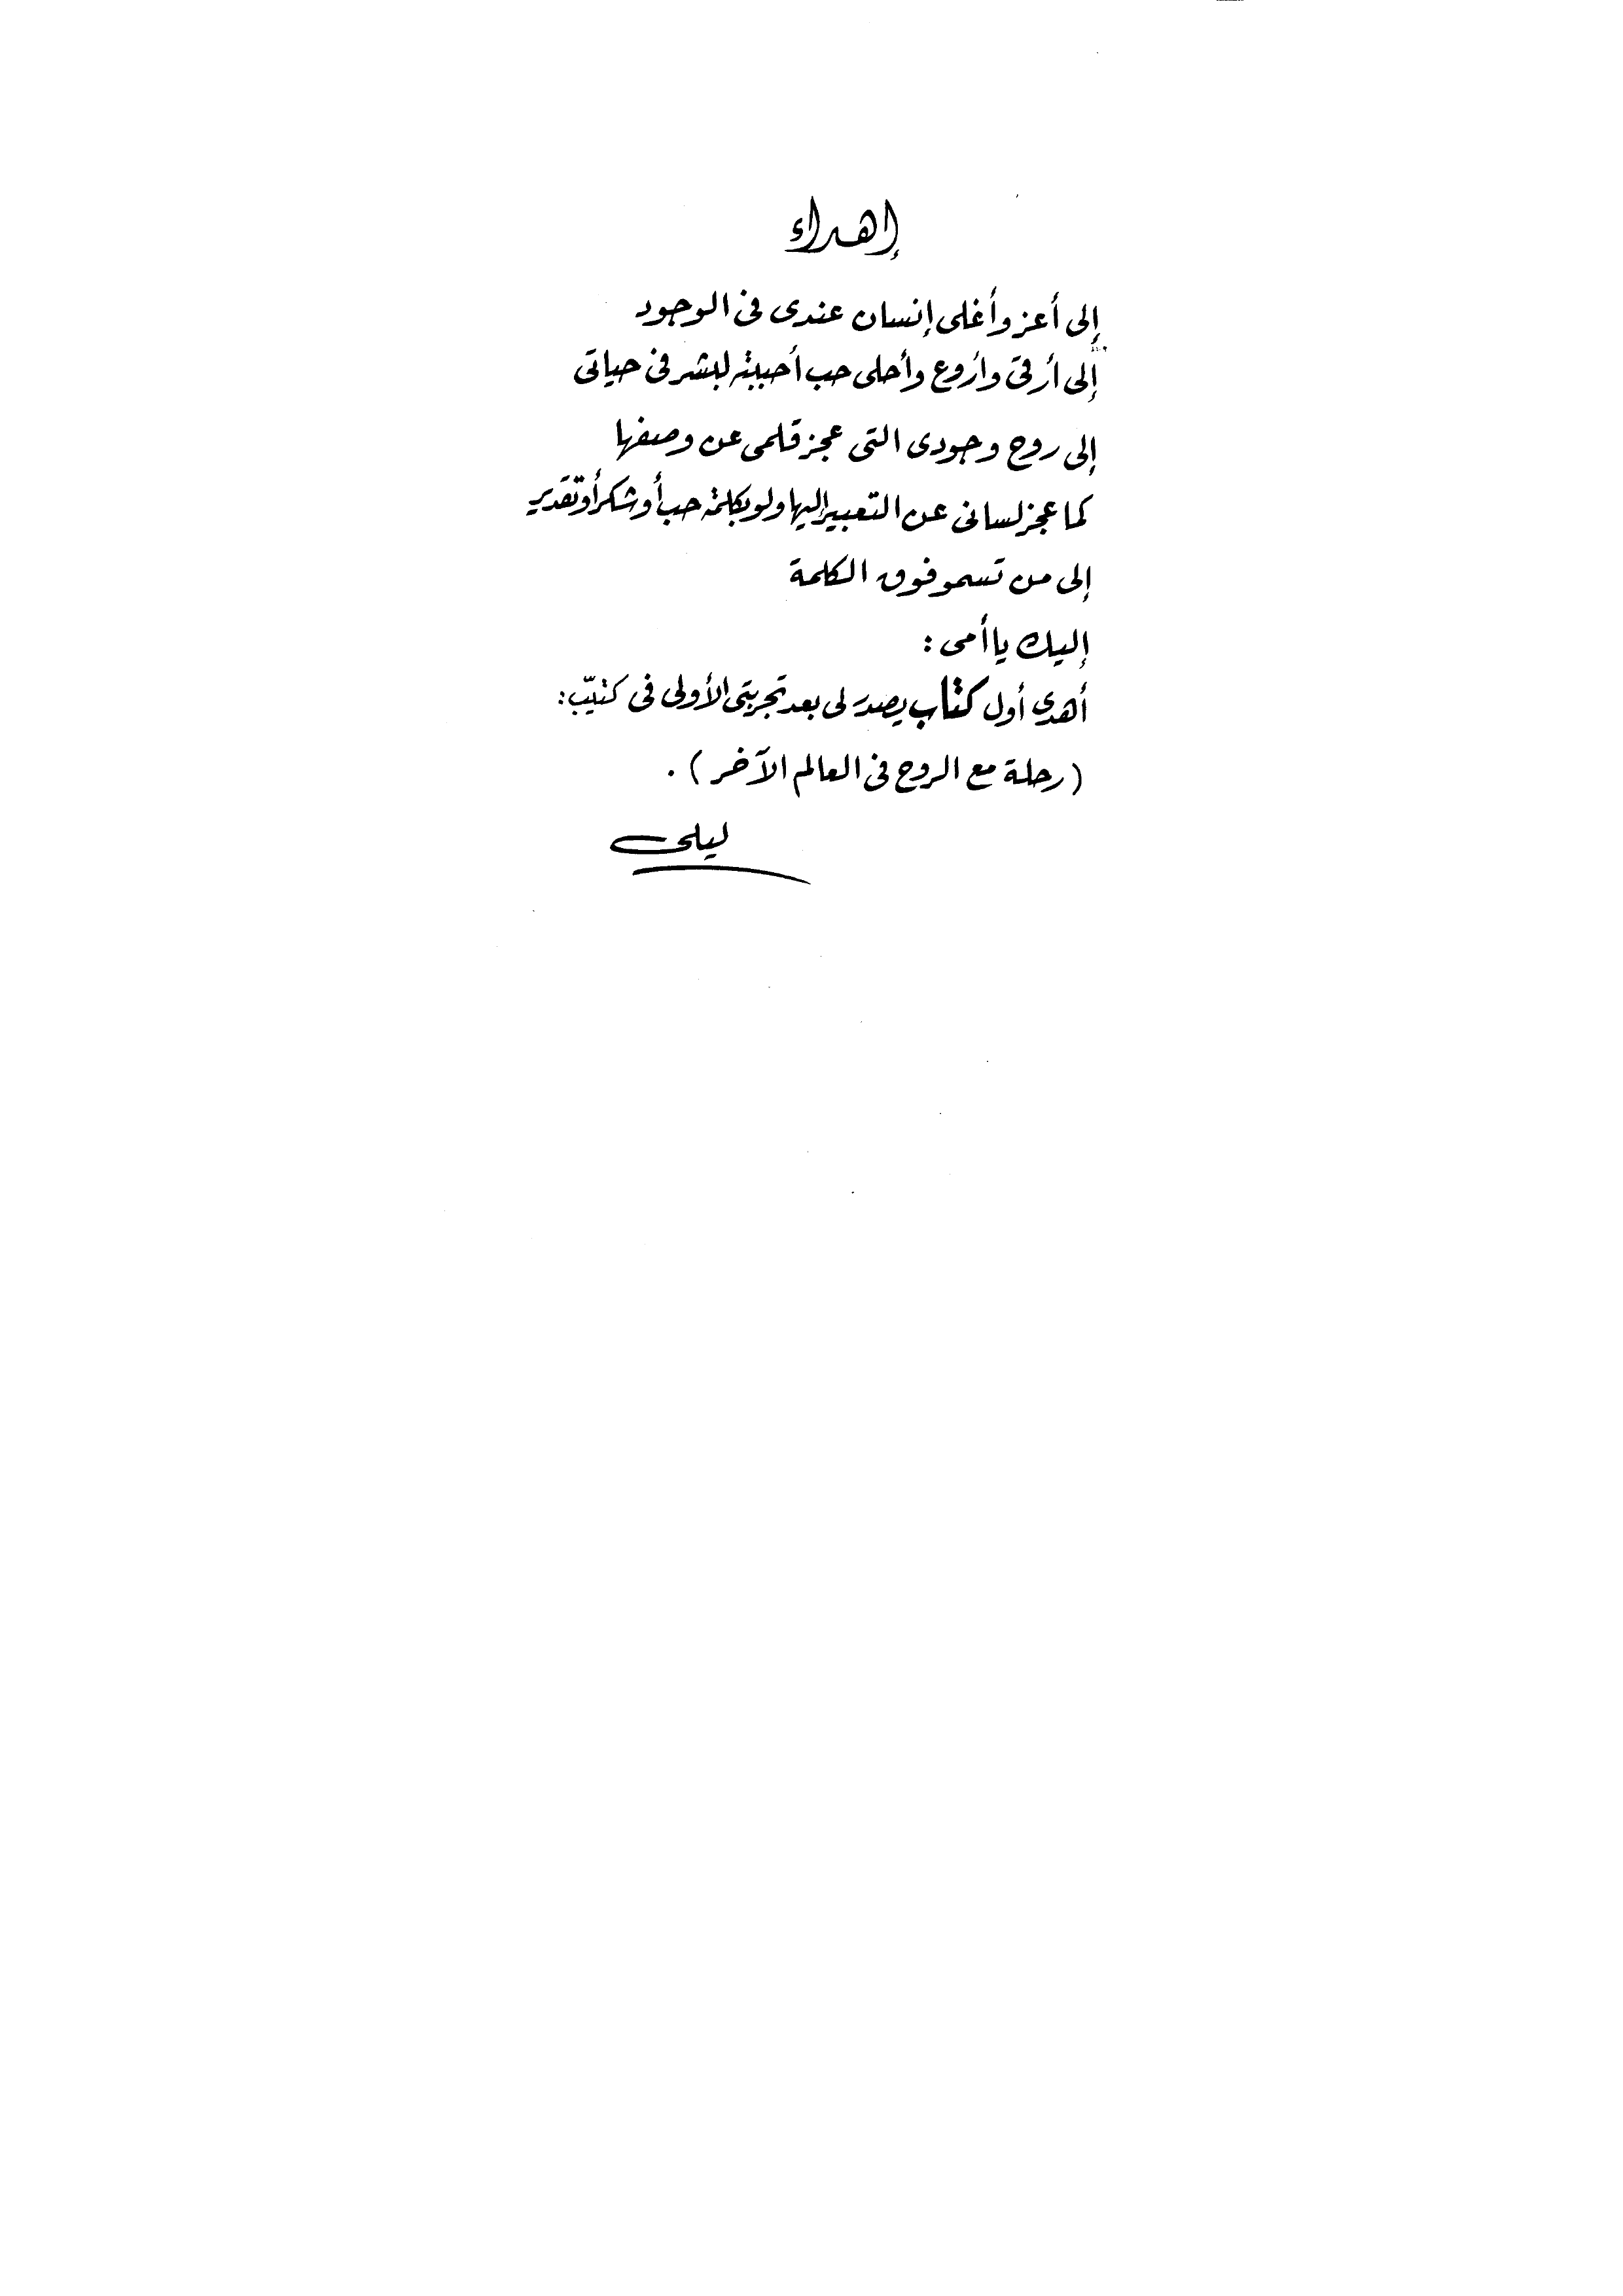 إهداء
إلى أعز وأغلى إنسان عندى فى الوجود
إلى أرق وأروع وأحلى حب أحببته لبشر فى حياتى
إلى روح وجودى التى عجز قلمى عن وصفها
كما عجز لسانى عن التعبير إليها ولو بكلمة حب أو شكر أو تقدير
إلى من تسمو فوق الكلمة
إليك يا أمى :
أهدى أول كتاب يصدر لى بعد تجربتى الأولى فى كتيّب :
( رحلة مع الروح فى العالم الآخر ) .
ليلى